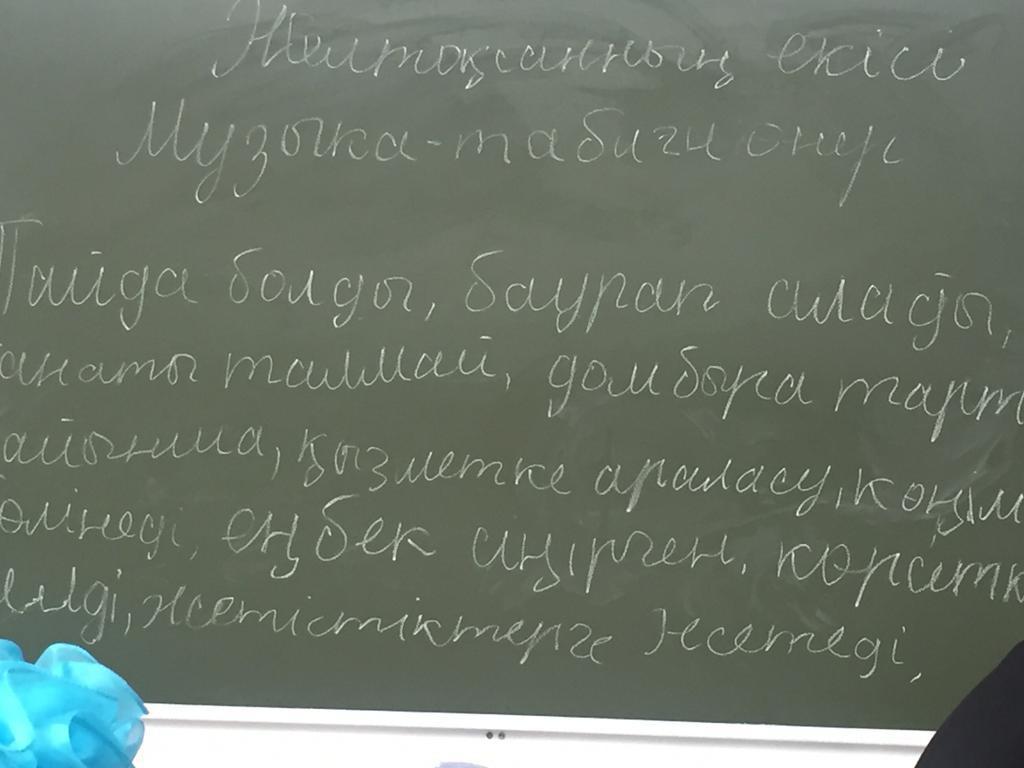 Желтоқсанның екісі
Музыка-табиғи өнер
Пайда болды, баурап алады,
анаты талмай, домбыра тарт
айынша, қызметке араласу, көңіл
өлінеді, еңбек сіңірген, көрсетк
елді, жетістіктерге жетеді,